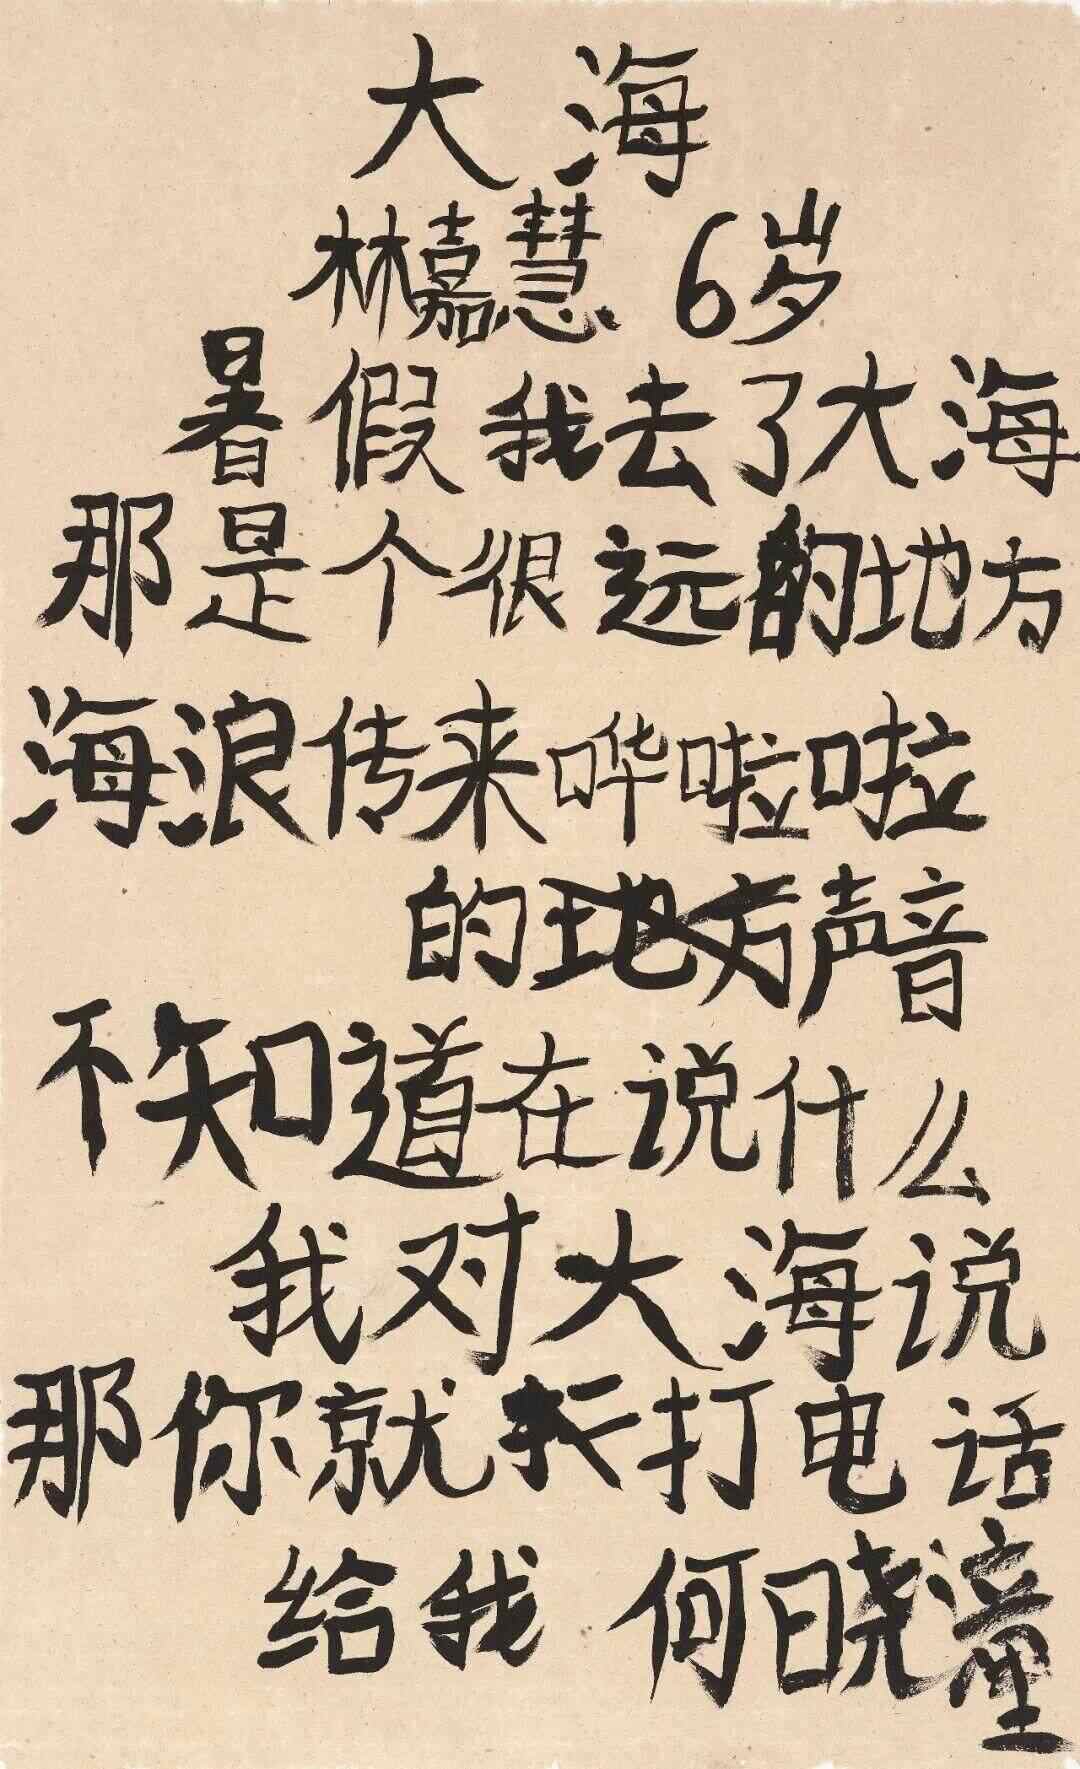 大海
林嘉慧 6岁
暑假我去了大海
那是个很远的地方
海浪传来哗啦啦
的地方声音
不知道在说什么
我对大海说
那你就打电话
给我 何晓潼